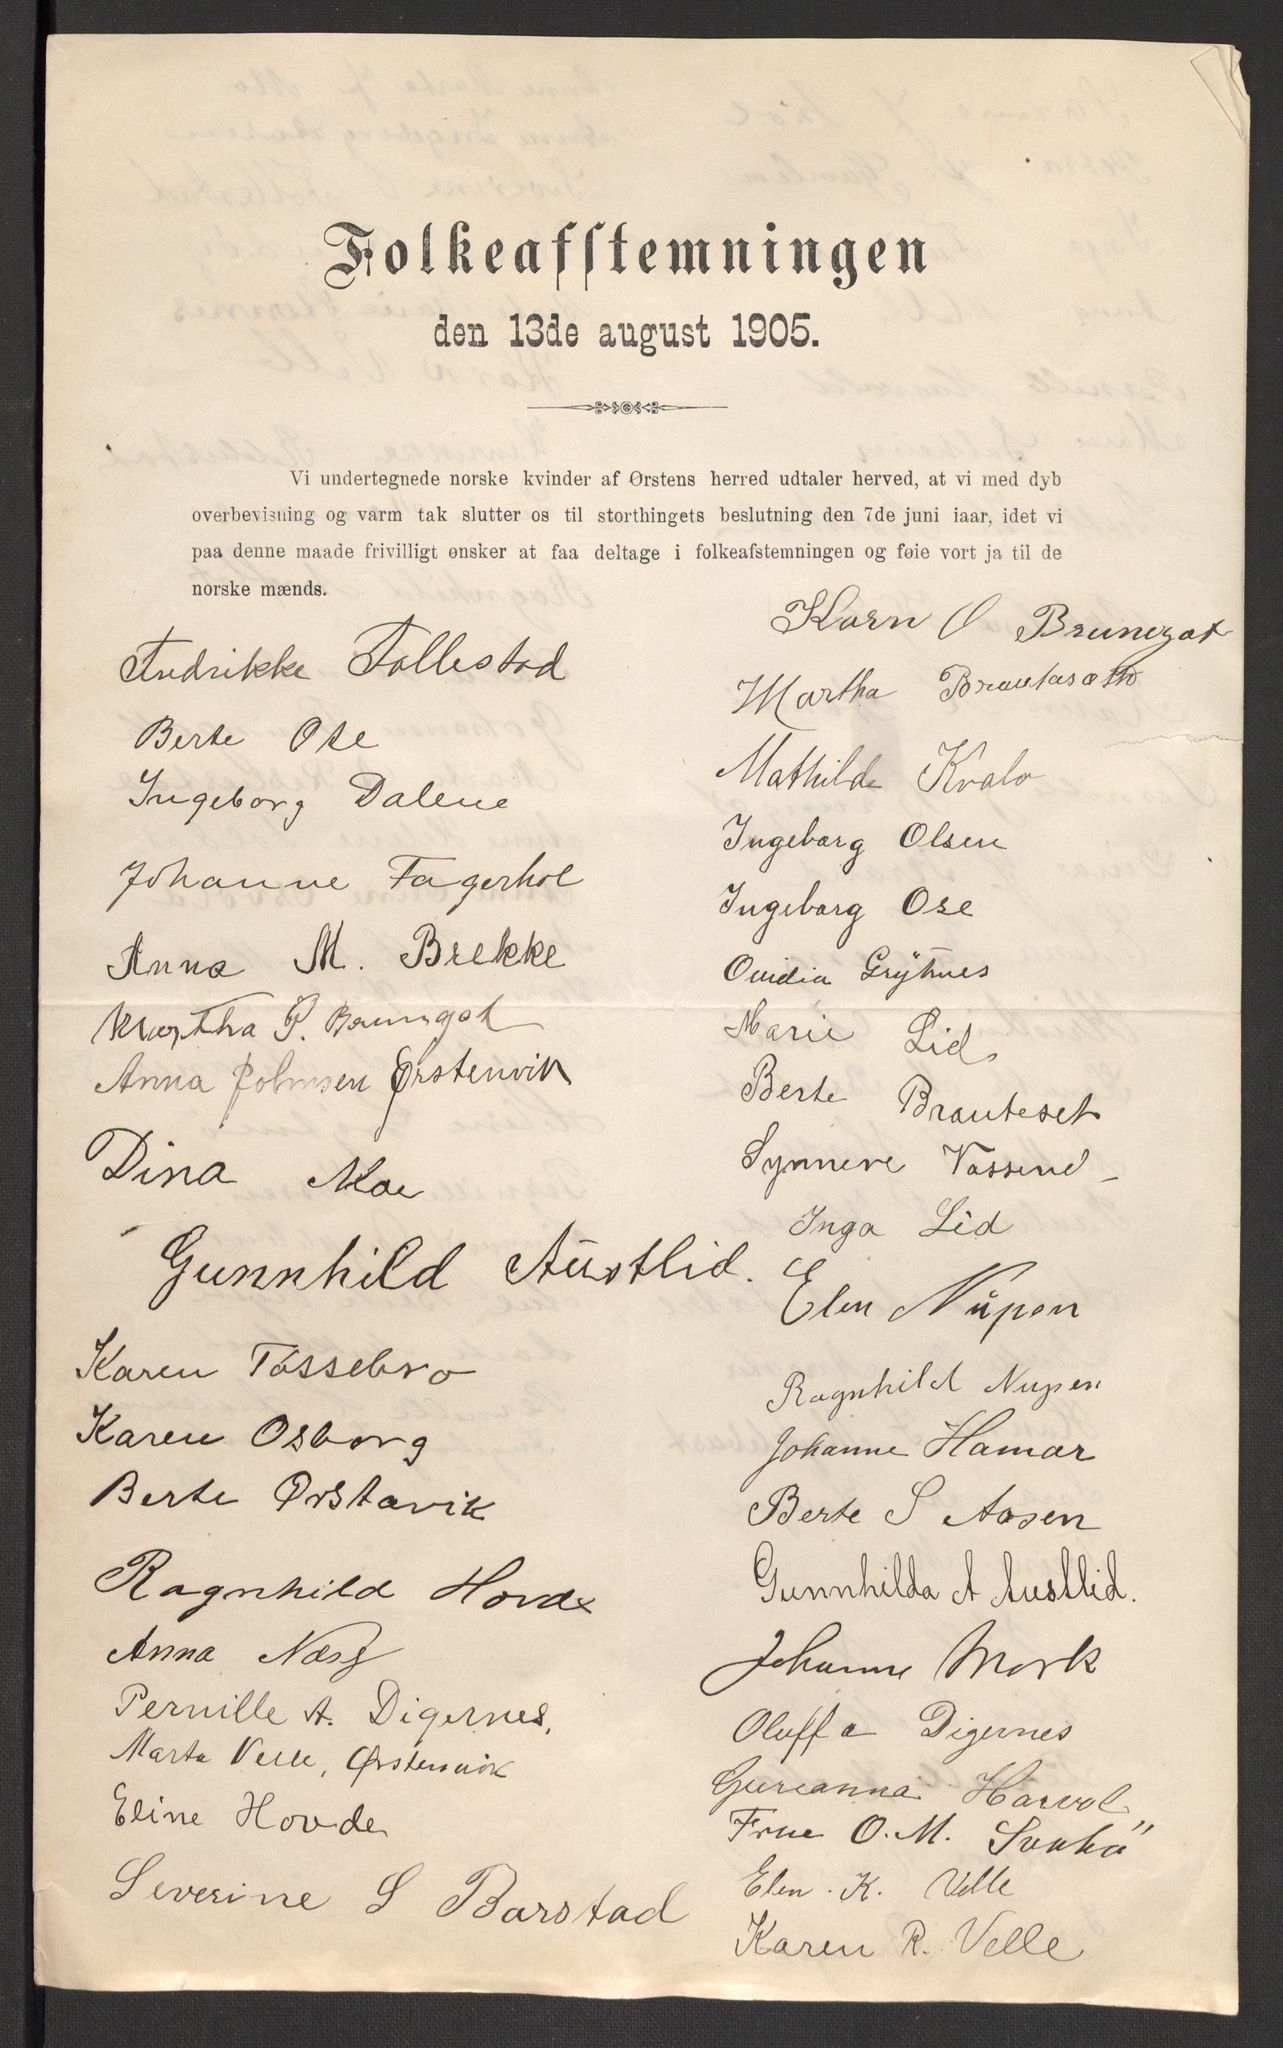 Folkeafstemningen
den 13de august 1905.
Vi undertegnede norske kvinder af Ørstens herred udtaler herved, at vi med dyb
overbevisning og varm tak slutter os til storthingets beslutning den 7de juni iaar, idet vi
paa denne maade frivilligt ønsker at faa deltage i folkeafstemningen og føie vort ja til de
norske mænds.
Fredrikke Follestad
Berte Ose
Ingeborg Dalene
Johanne Fagerhol
Anna M. Brekke
Martha P. Brungot
Anna Johnsen Ørstenvik
Dina Moe
Gunnhild Austlid.
Karen Tossebro
Karen Osborg
Berte Ørstavik
Ragnhild Hovde
Anna Næss
Pernille A. Digernes.
Marta Velle, Ørstenvik
Eline Hovde
Severine S Barstad
Karn O Brungot
Martha Brautaseth
Mathilde Kvalo
Ingeborg Olsen
Ingeborg Ose
Ovidia Grytnes
Marie Lid
Berte Brauteset
Synneve Vassend
Inga Lid
Elen Nupen
Ragnhild Nupen
Johanne Hamar
Berte S Aasen
Gunnhilda A Austlid.
Johanne Mork
Oluffa Digernes
Gurianna Harvol
Frue O. M.
Elen. K. Velle
Karen R. Velle